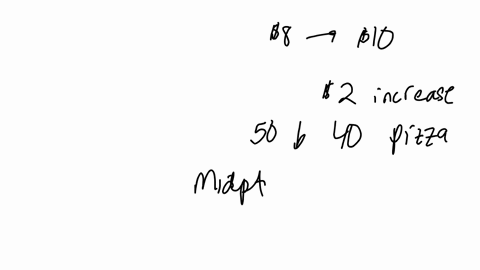 $8 → $10
$2 increase
50 b 40 pizza
Midpt